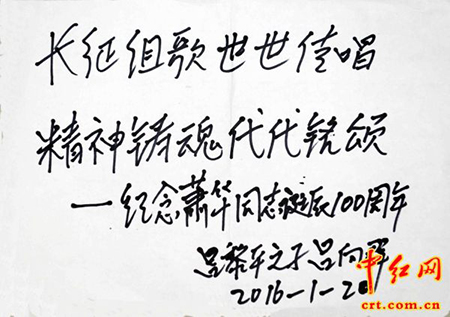 长征组歌世世传唱
精神铸魂代代铭颂
一纪念萧华同志诞辰100周年
吕黎平之子吕向
2016-1-20
中红网
crt.com.cn